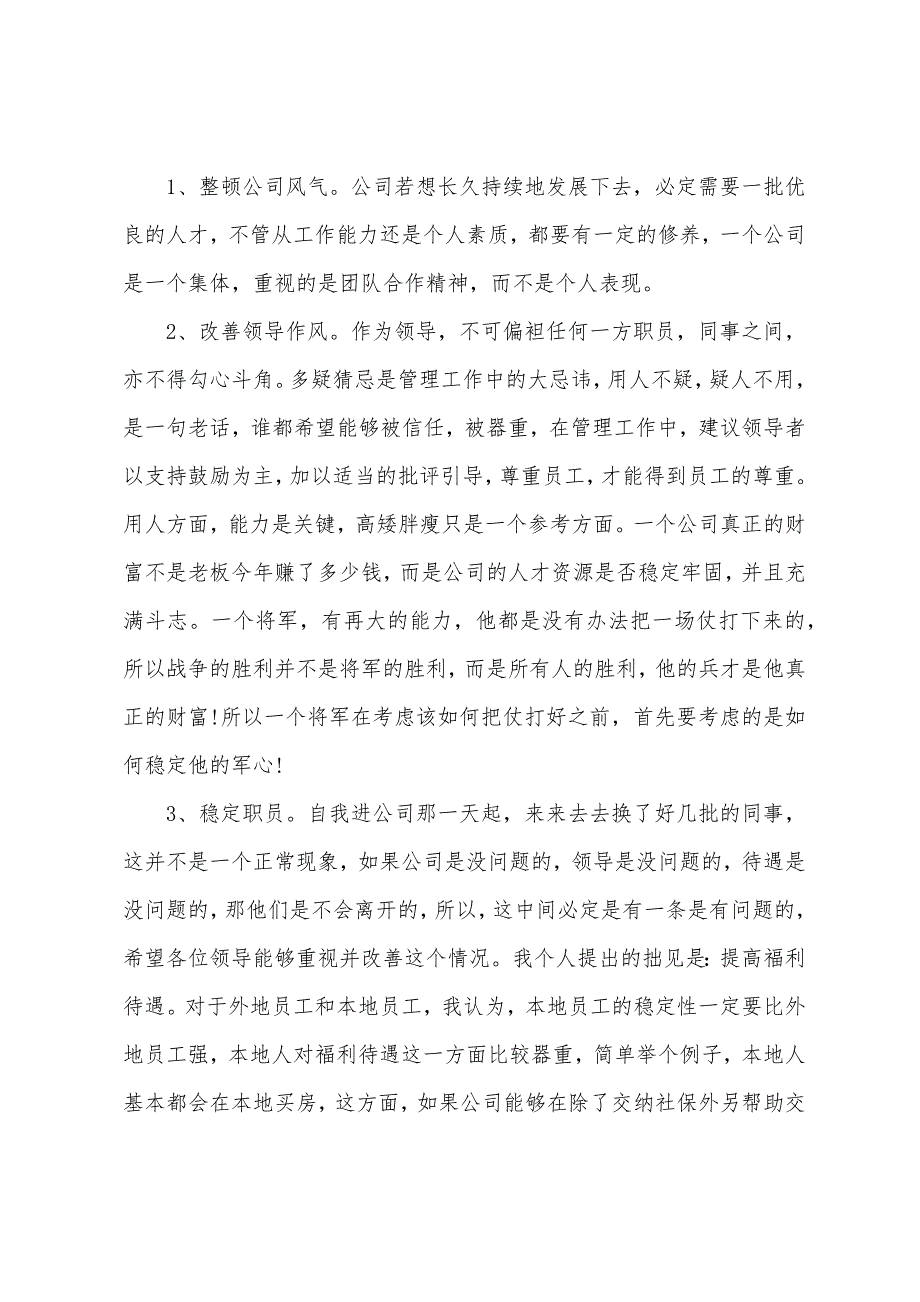 1、整顿公司风气。公司若想长久持续地发展下去，必定需要一批优
良的人才，不管从工作能力还是个人素质，都要有一定的修养，一个公司
是一个集体，重视的是团队合作精神，而不是个人表现。
2、改善领导作风。作为领导，不可偏袒任何一方职员，同事之间，
亦不得勾心斗角。多疑猜忌是管理工作中的大忌讳，用人不疑，疑人不用，
是一句老话，谁都希望能够被信任，被器重，在管理工作中，建议领导者
以支持鼓励为主，加以适当的批评引导，尊重员工，才能得到员工的尊重。
用人方面，能力是关键，高矮胖瘦只是一个参考方面。一个公司真正的财
富不是老板今年赚了多少钱，而是公司的人才资源是否稳定牢固，并且充
满斗志。一个将军，有再大的能力，他都是没有办法把一场仗打下来的，
所以战争的胜利并不是将军的胜利，而是所有人的胜利，他的兵才是他真
正的财富!所以一个将军在考虑该如何把仗打好之前，首先要考虑的是如
何稳定他的军心!
3、稳定职员。自我进公司那一天起，来来去去换了好几批的同事，
这并不是一个正常现象，如果公司是没问题的，领导是没问题的，待遇是
没问题的，那他们是不会离开的，所以，这中间必定是有一条是有问题的，
希望各位领导能够重视并改善这个情况。我个人提出的拙见是：提高福利
待遇。对于外地员工和本地员工，我认为，本地员工的稳定性一定要比外
地员工强，本地人对福利待遇这一方面比较器重，简单举个例子，本地人
基本都会在本地买房，这方面，如果公司能够在除了交纳社保外另帮助交